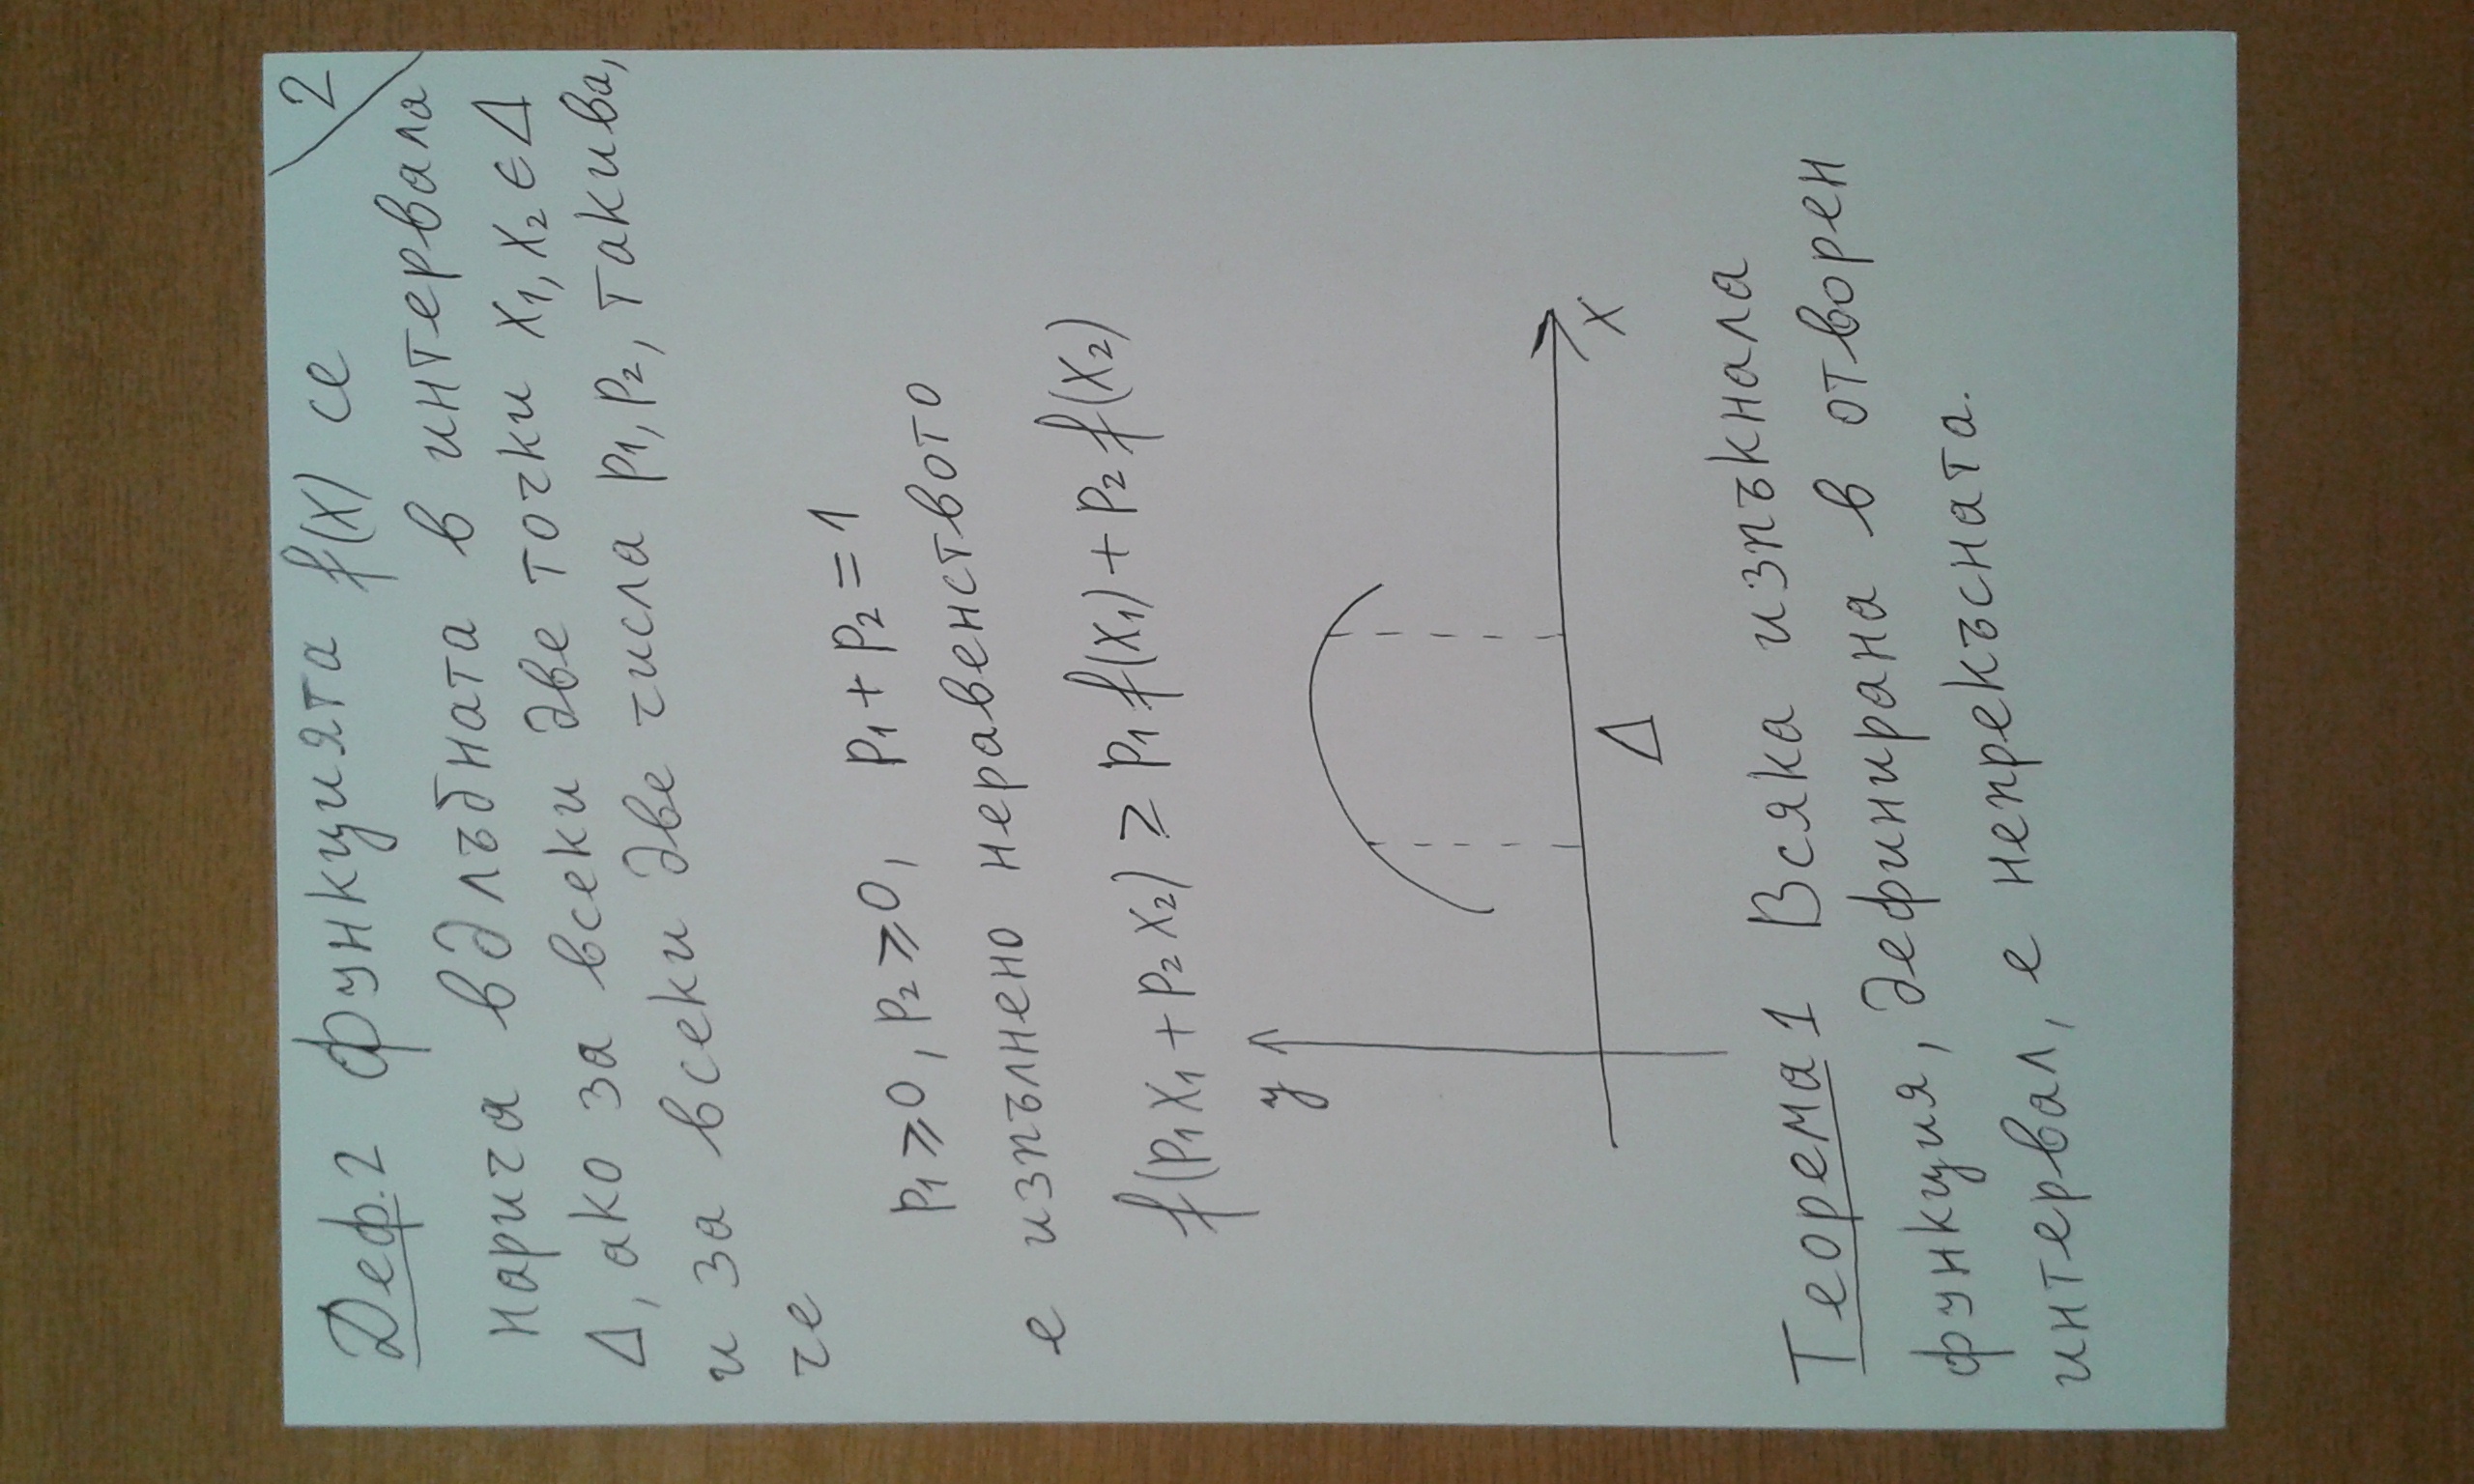 2
Деф.2 Функцията f(x) се
нарича вдлъбната в интервала
Δ, ако за всеки две точки x₁, x₂ ∈ Δ
и за всеки две числа p₁, p₂, такива,
че
p₁ ⩾ 0, p₂ ⩾ 0, p₁ + p₂ = 1
е изпълнено неравенството
f(p₁x₁ + p₂x₂) ≥ p₁f(x₁) + p₂f(x₂)
y
Δ
x
Теорема 1 Всяка изпъкнала
функция, дефинирана в отворен
интервал, е непрекъсната.